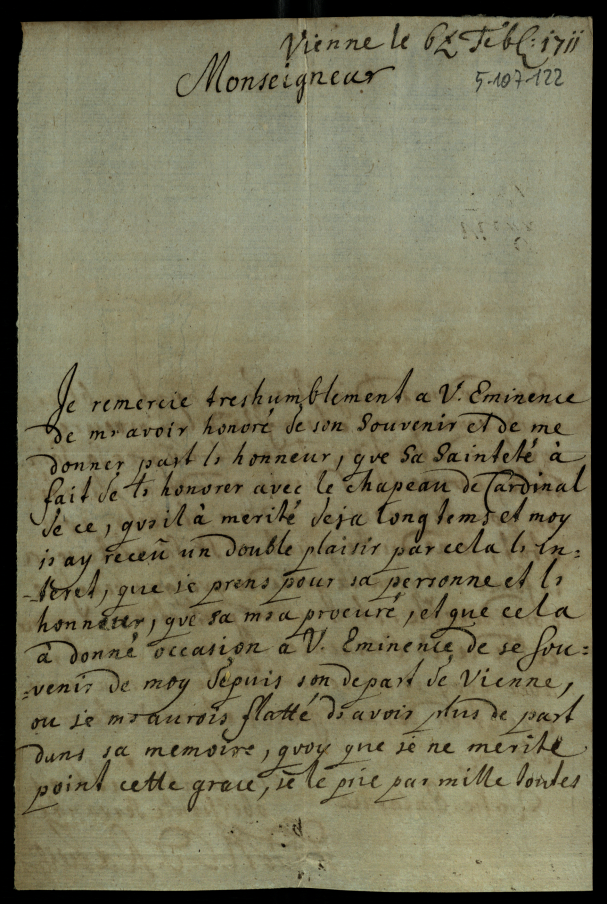 Vienne le 6 Feb: 1711
Monseigneur
5-107-122
Je remercie treshumblement a V. Eminence
de mr avoir honoré de son Souvenir et de me
donner part ls honneur, que Sa Sainteté à
fait de ls honorer avec le chapeau de Cardinal
de ce, qusil à merité deja longtems et moy
js ay receü un double plaisir par cela ls in=
=teret, que je prens pour sa personne et ls
honneur, que sa ms a procuré, et que cela
à donné occasion a V. Eminence de se sou=
=venir de moy dépuis son depart de Vienne,
ou je ms aurois flatté ds avoir plus de part
dans sa memoire, quoy que je ne merite
point cette grace, je le prie par mille toutes